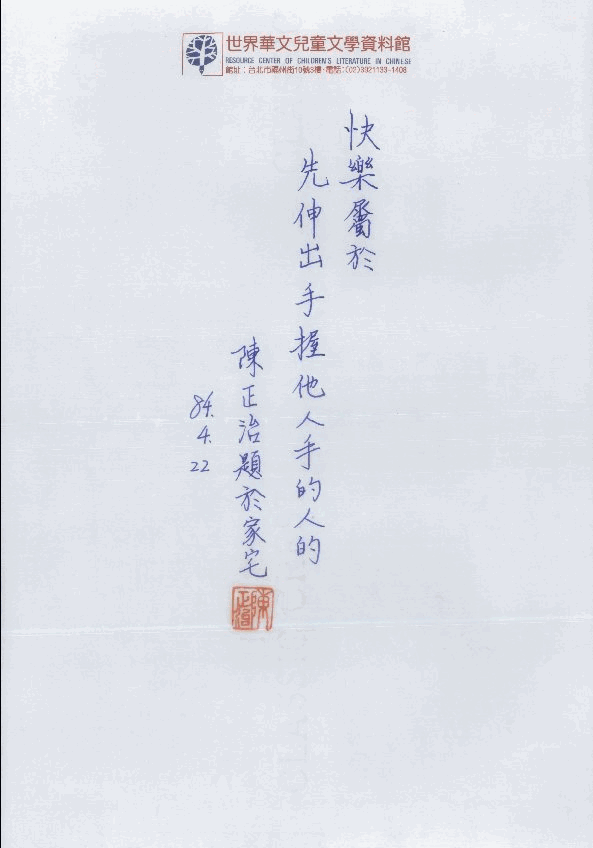 世界華文兒童文學資料館
RESOURCE CENTER OF CHILDREN'S LITERATURE IN CHINESE
館址：台北市福州街10號3樓·電話：(02)3921133-1408
快樂屬於
先伸出手握他人手的人的
陳正治題於家宅
84.4.22
陳正治